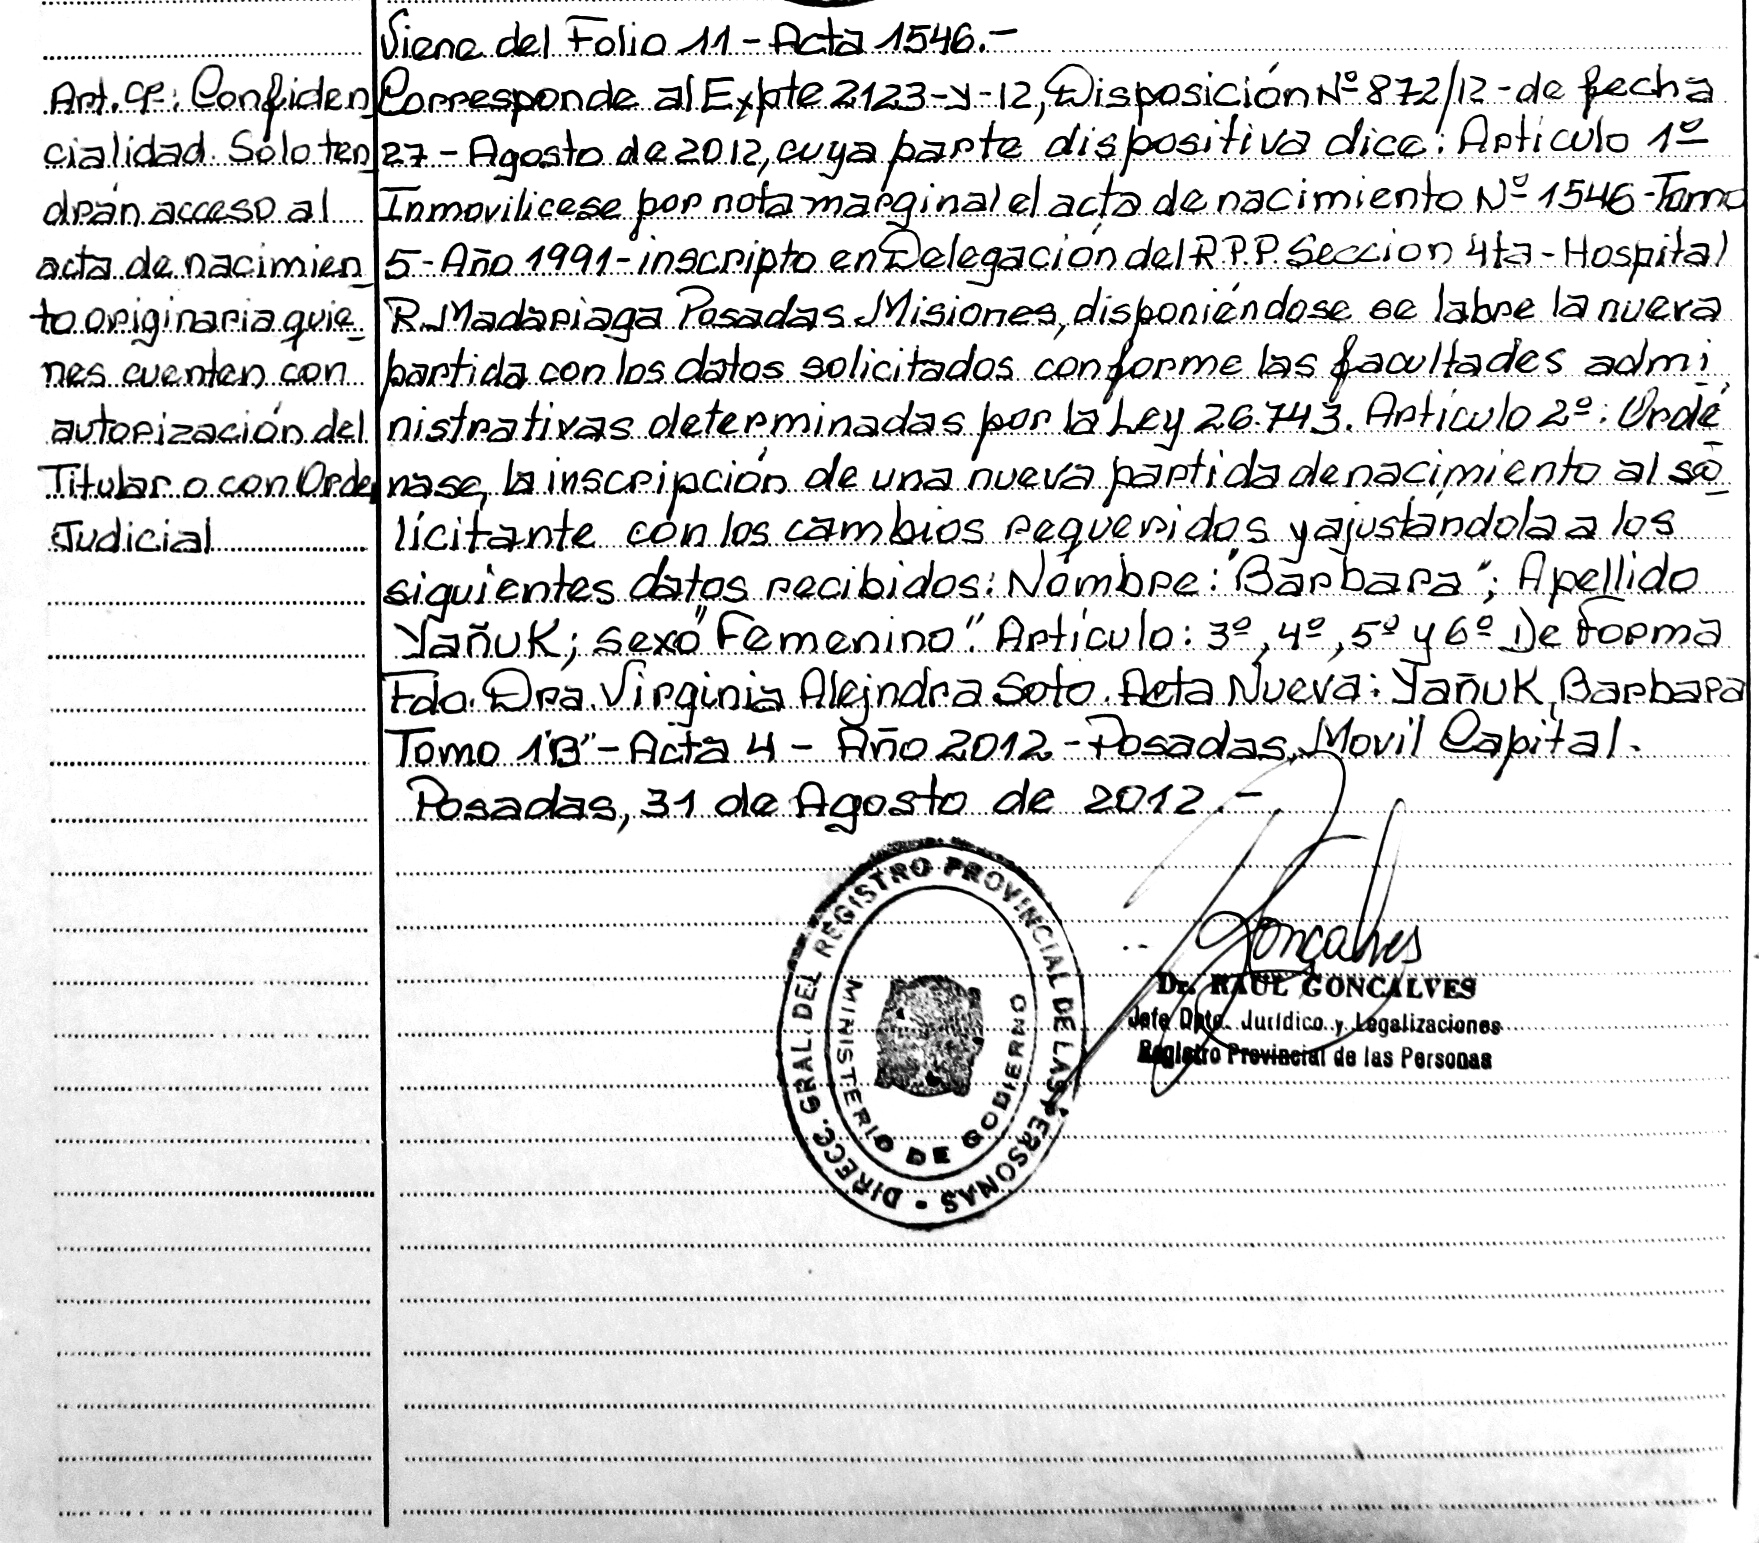 Viene del Folio 11 - Acta 1546.-
Art. 9º: Confiden
cialidad. Sólo ten
drán acceso al
acta de nacimien
to originaria quie
nes cuenten con
autorización del
Titular o con Orden
Judicial
Corresponde al Expte 2123-y-12, Disposición Nº 872/12 - de fecha
27 - Agosto de 2012, cuya parte dispositiva dice: Artículo 1º
Inmovilícese por nota marginal el acta de nacimiento Nº 1546 - Tomo
5 - Año 1991 - inscripto en Delegación del R.P.P. Seccion 4ta - Hospital
R. Madariaga Posadas Misiones, disponiéndose se labre la nueva
partida con los datos solicitados conforme las facultades admi
nistrativas determinadas por la Ley 26.743. Artículo 2º: Ordé
nase, la inscripción de una nueva partida de nacimiento al so
licitante con los cambios requeridos y ajustándola a los
siguientes datos recibidos: Nombre: "Barbara"; Apellido
Yañuk; sexo "Femenino". Artículo: 3º, 4º, 5º y 6º De Forma
Fdo. Dra. Virginia Alejndra Soto. Acta Nueva: Yañuk, Barbara
Tomo 1"B" - Acta 4 - Año 2012 - Posadas, Movil Capital.
Posadas, 31 de Agosto de 2012.-
DIRECC. GRAL. DEL REGISTRO PROVINCIAL DE LAS PERSONAS
MINISTERIO DE GOBIERNO
Goncalves
Dr. RAUL GONCALVES
Jefe Dpto. Jurídico y Legalizaciones
Registro Provincial de las Personas